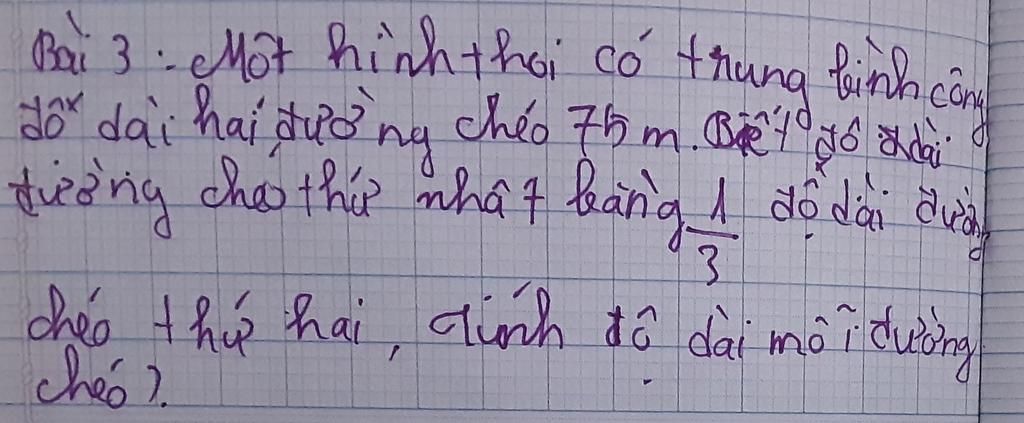 Bài 3: Một hình thoi có trung bình cộng
độ dài hai đường chéo 75 m. Biết độ dài
đường chéo thứ nhất bằng 1/3 độ dài đường
chéo thứ hai, tính độ dài mỗi đường
chéo?